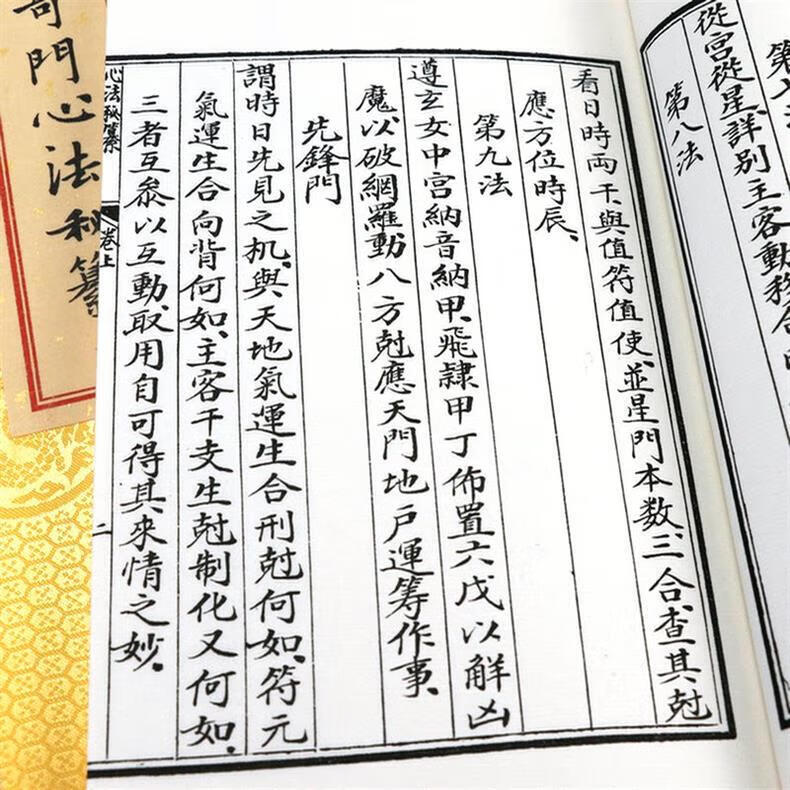 第八法
從宮從星詳別主客動
第八法
看日時兩干、與值符值使、並星門本数、三合、查其尅
應方位時辰、
第九法
遵玄女中宮納音納甲、飛隸甲丁佈置六戊以解凶
魔以破網羅動八方尅應天門地户運筹作事、
先鋒門
謂時日先見之机、與天地氣運生合刑尅何如、符元
氣運生合向背何如、主客干支生尅制化又何如、
三者互叅以互動、取用自可得其来情之妙、
心法秘纂
卷上
二
奇門心法秘纂